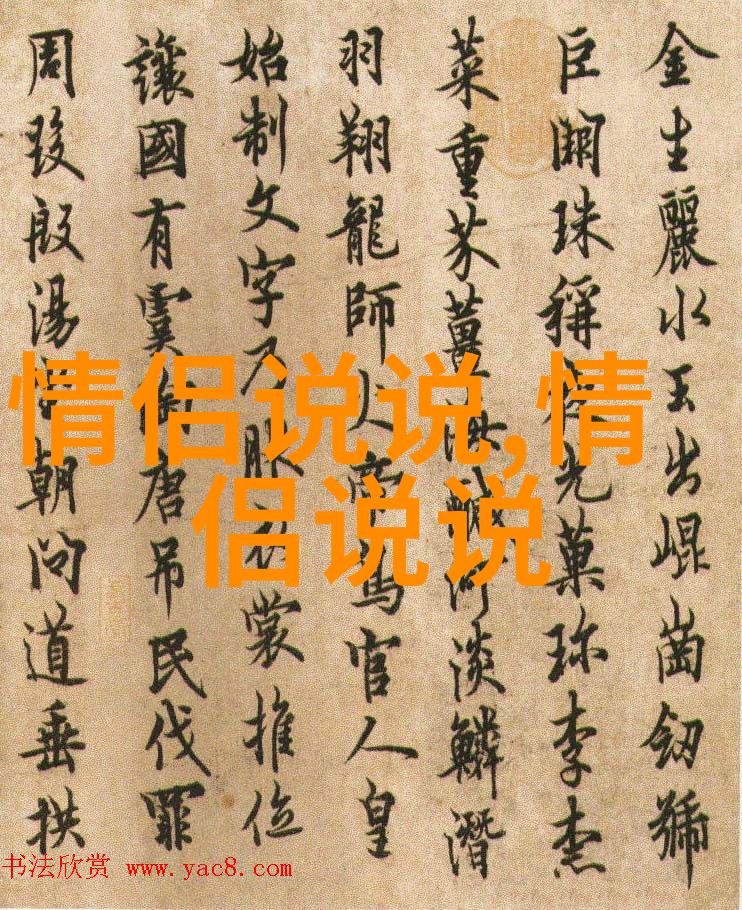 金生麗水玉出崐崗釼號
巨闕珠稱光菓珎李柰
菜重芥薑海鹹河淡鱗潛
羽翔龍師火帝鳥官人皇
始制文字乃服衣裳推位
讓國有虞陶唐吊民伐罪
周發殷湯坐朝問道垂拱
情侣说说,情
侣说说
书法欣赏 www.yac8.com